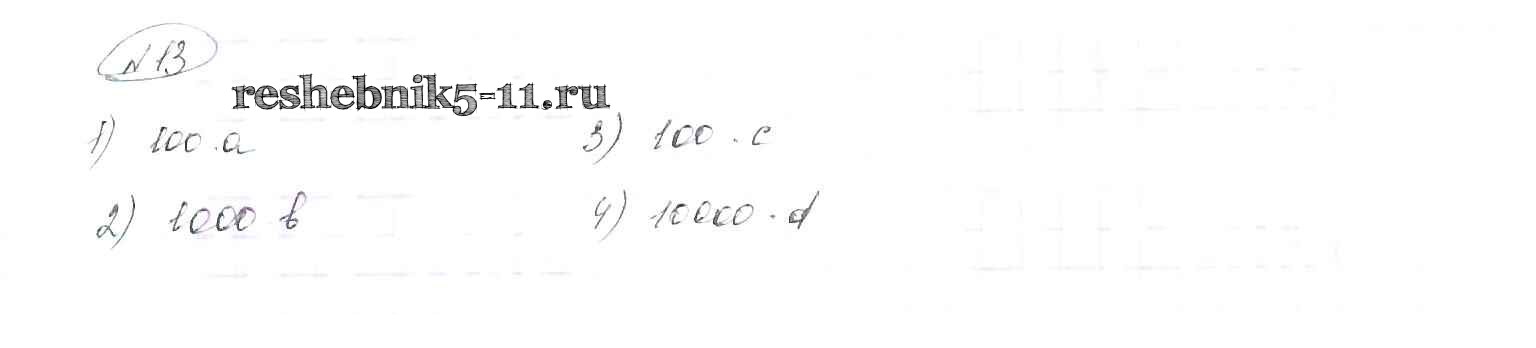 № 13
reshebnik5-11.ru
1) 100·a
3) 100·c
2) 1000 b
4) 10000·d